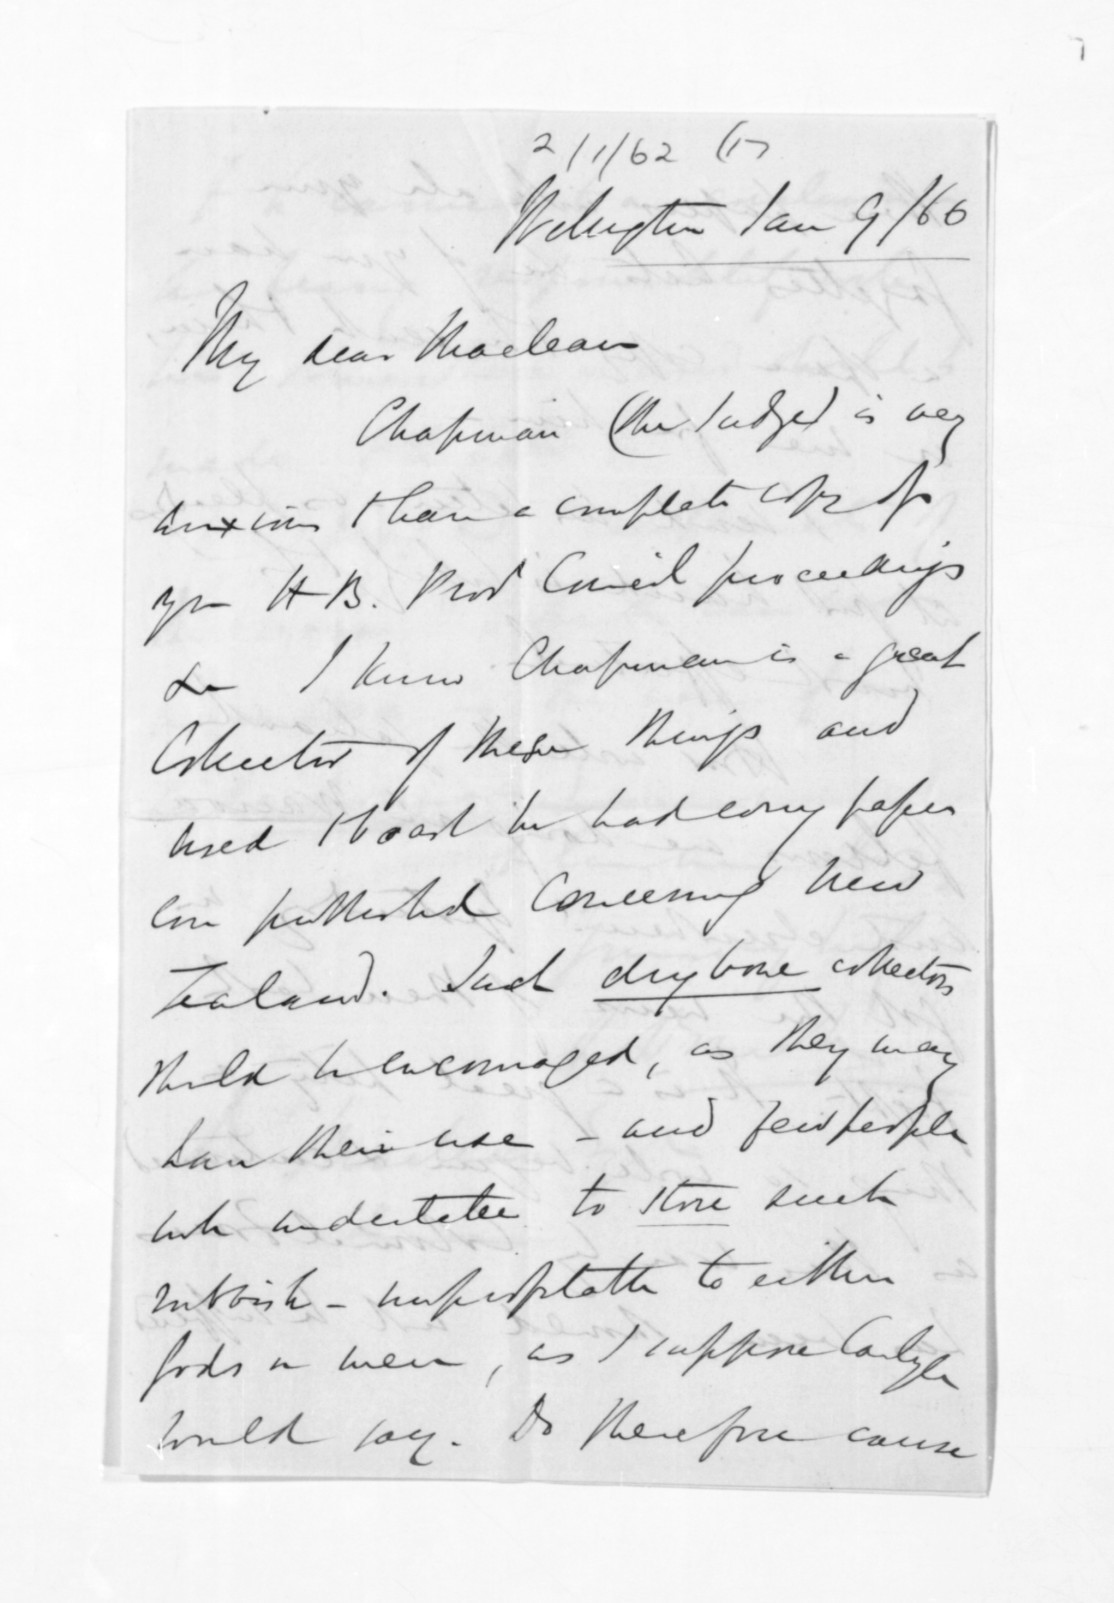 2/1/62 (1)
Wellington Jan 9/66
My dear Maclean
Chapman (the Judge) is very
anxious to have a complete copy of
your H B. Prov Council proceedings
&c I know Chapman is a great
Collector of these things and
used to boast he had every paper
ever published concerning New
Zealand. Such dry bone collectors
should be encouraged, as they may
have their use - and few people
will undertake to store such
rubbish - unprofitable to either
gods or men, as I suppose Carlyle
would say. Do therefore cause